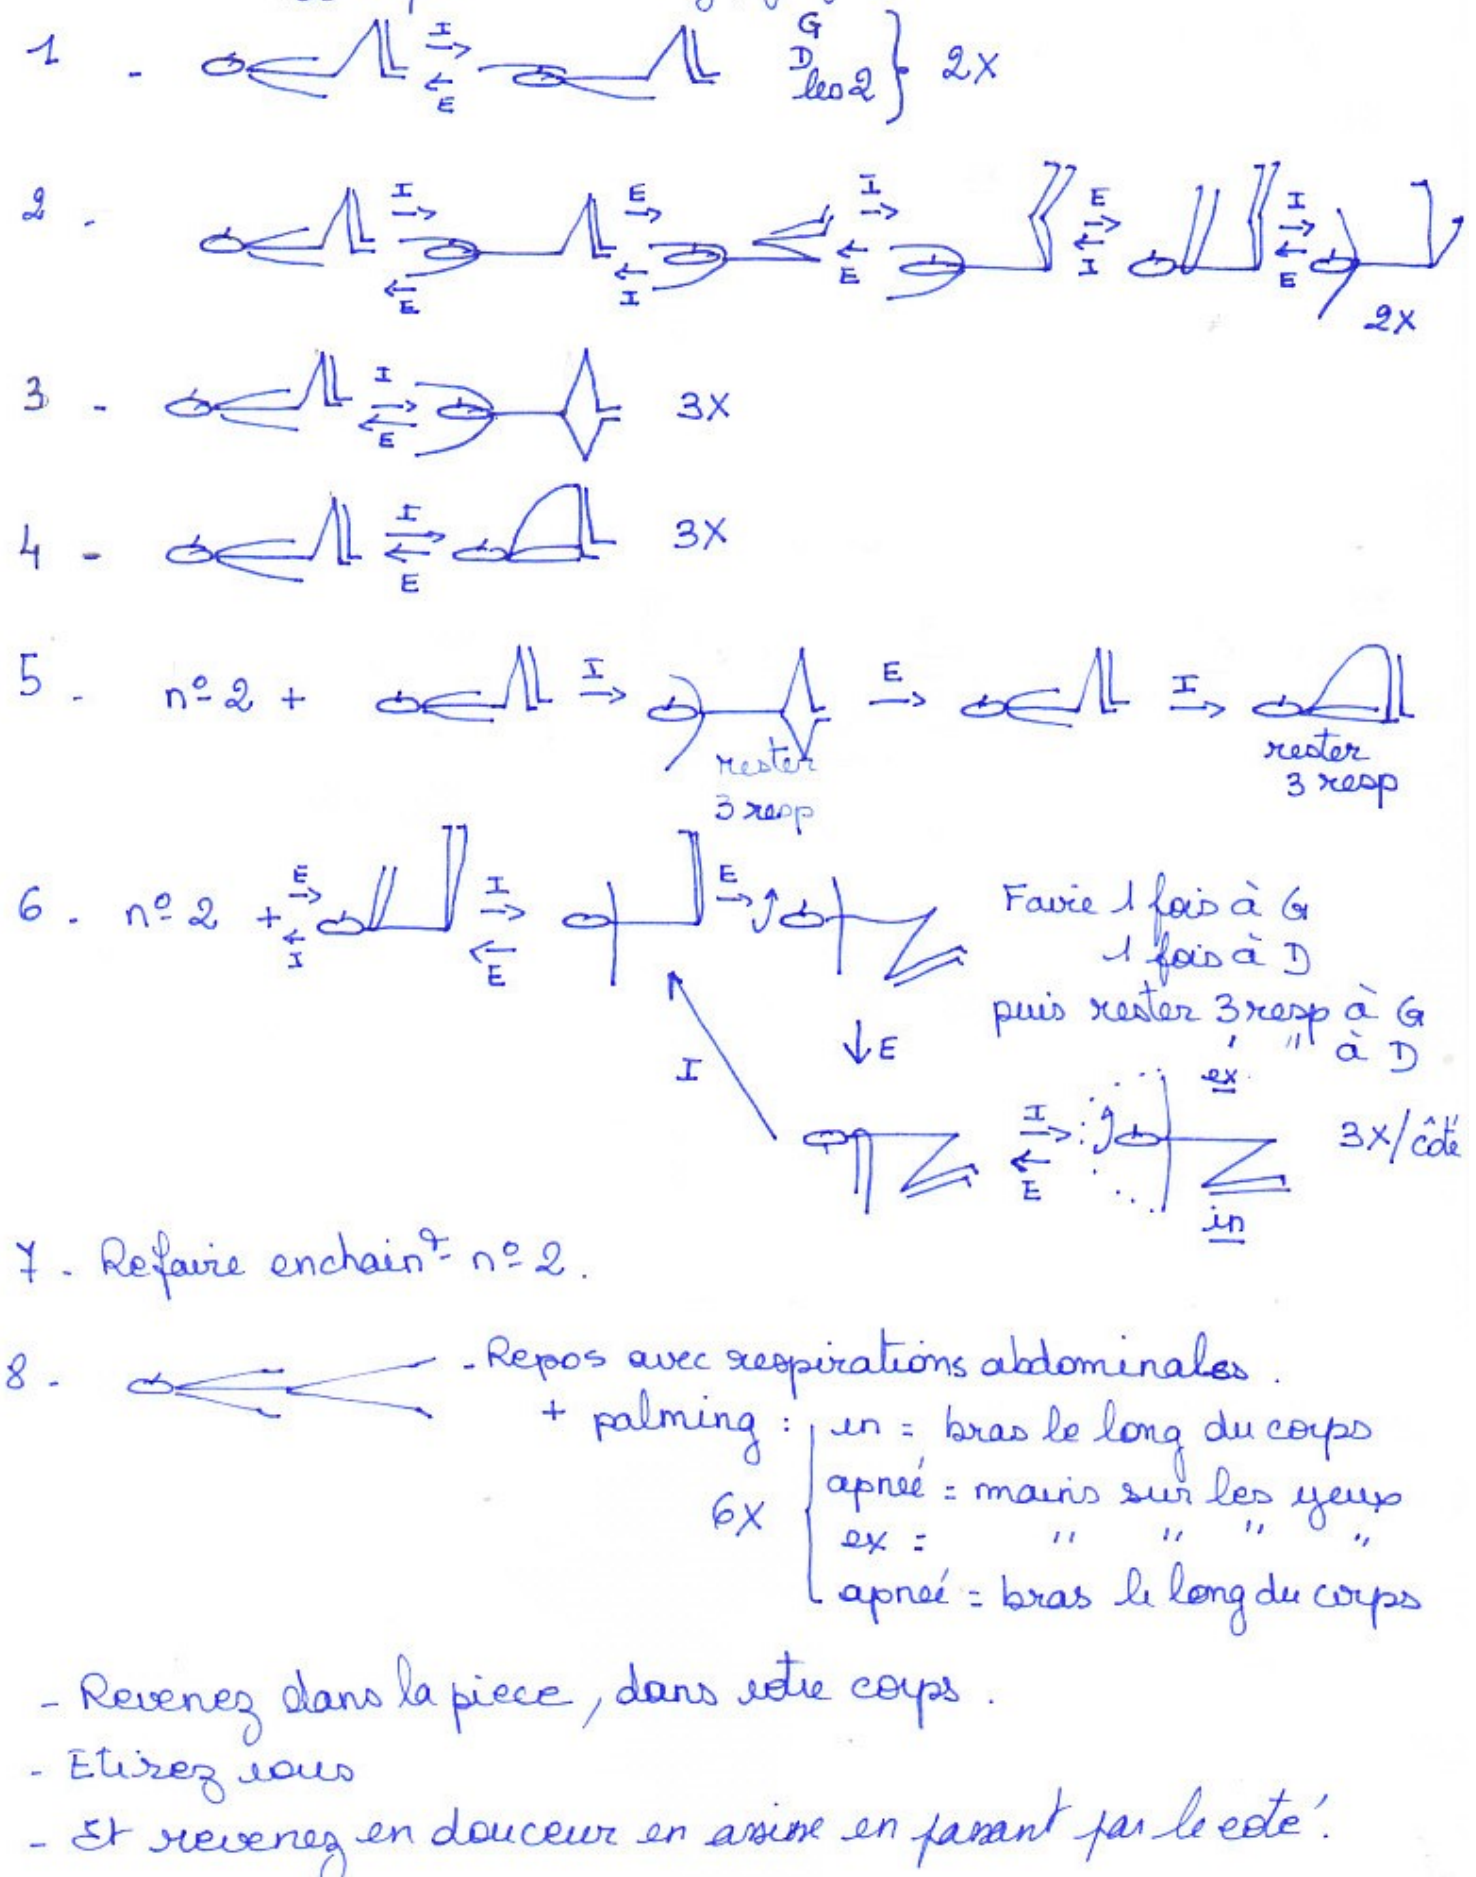 1 - I E G D les 2 } 2X
2 - I E E I I E E I I E 2X
3 - I E 3X
4 - I E 3X
5 - nº 2 + I E I
rester 3 resp rester 3 resp
6. nº 2 + E I I E E
Faire 1 fois à G
1 fois à D
puis rester 3 resp à G
" " à D
I E I E ex in 3X/côté
7 - Refaire enchaint nº 2.
8 - - Repos avec respirations abdominales.
+ palming : in = bras le long du corps
6X apneé = mains sur les yeux
ex = " " " "
apneé = bras le long du corps
- Revenez dans la piece, dans votre corps.
- Etirez vous
- Et revenez en douceur en assise en passant par le coté.